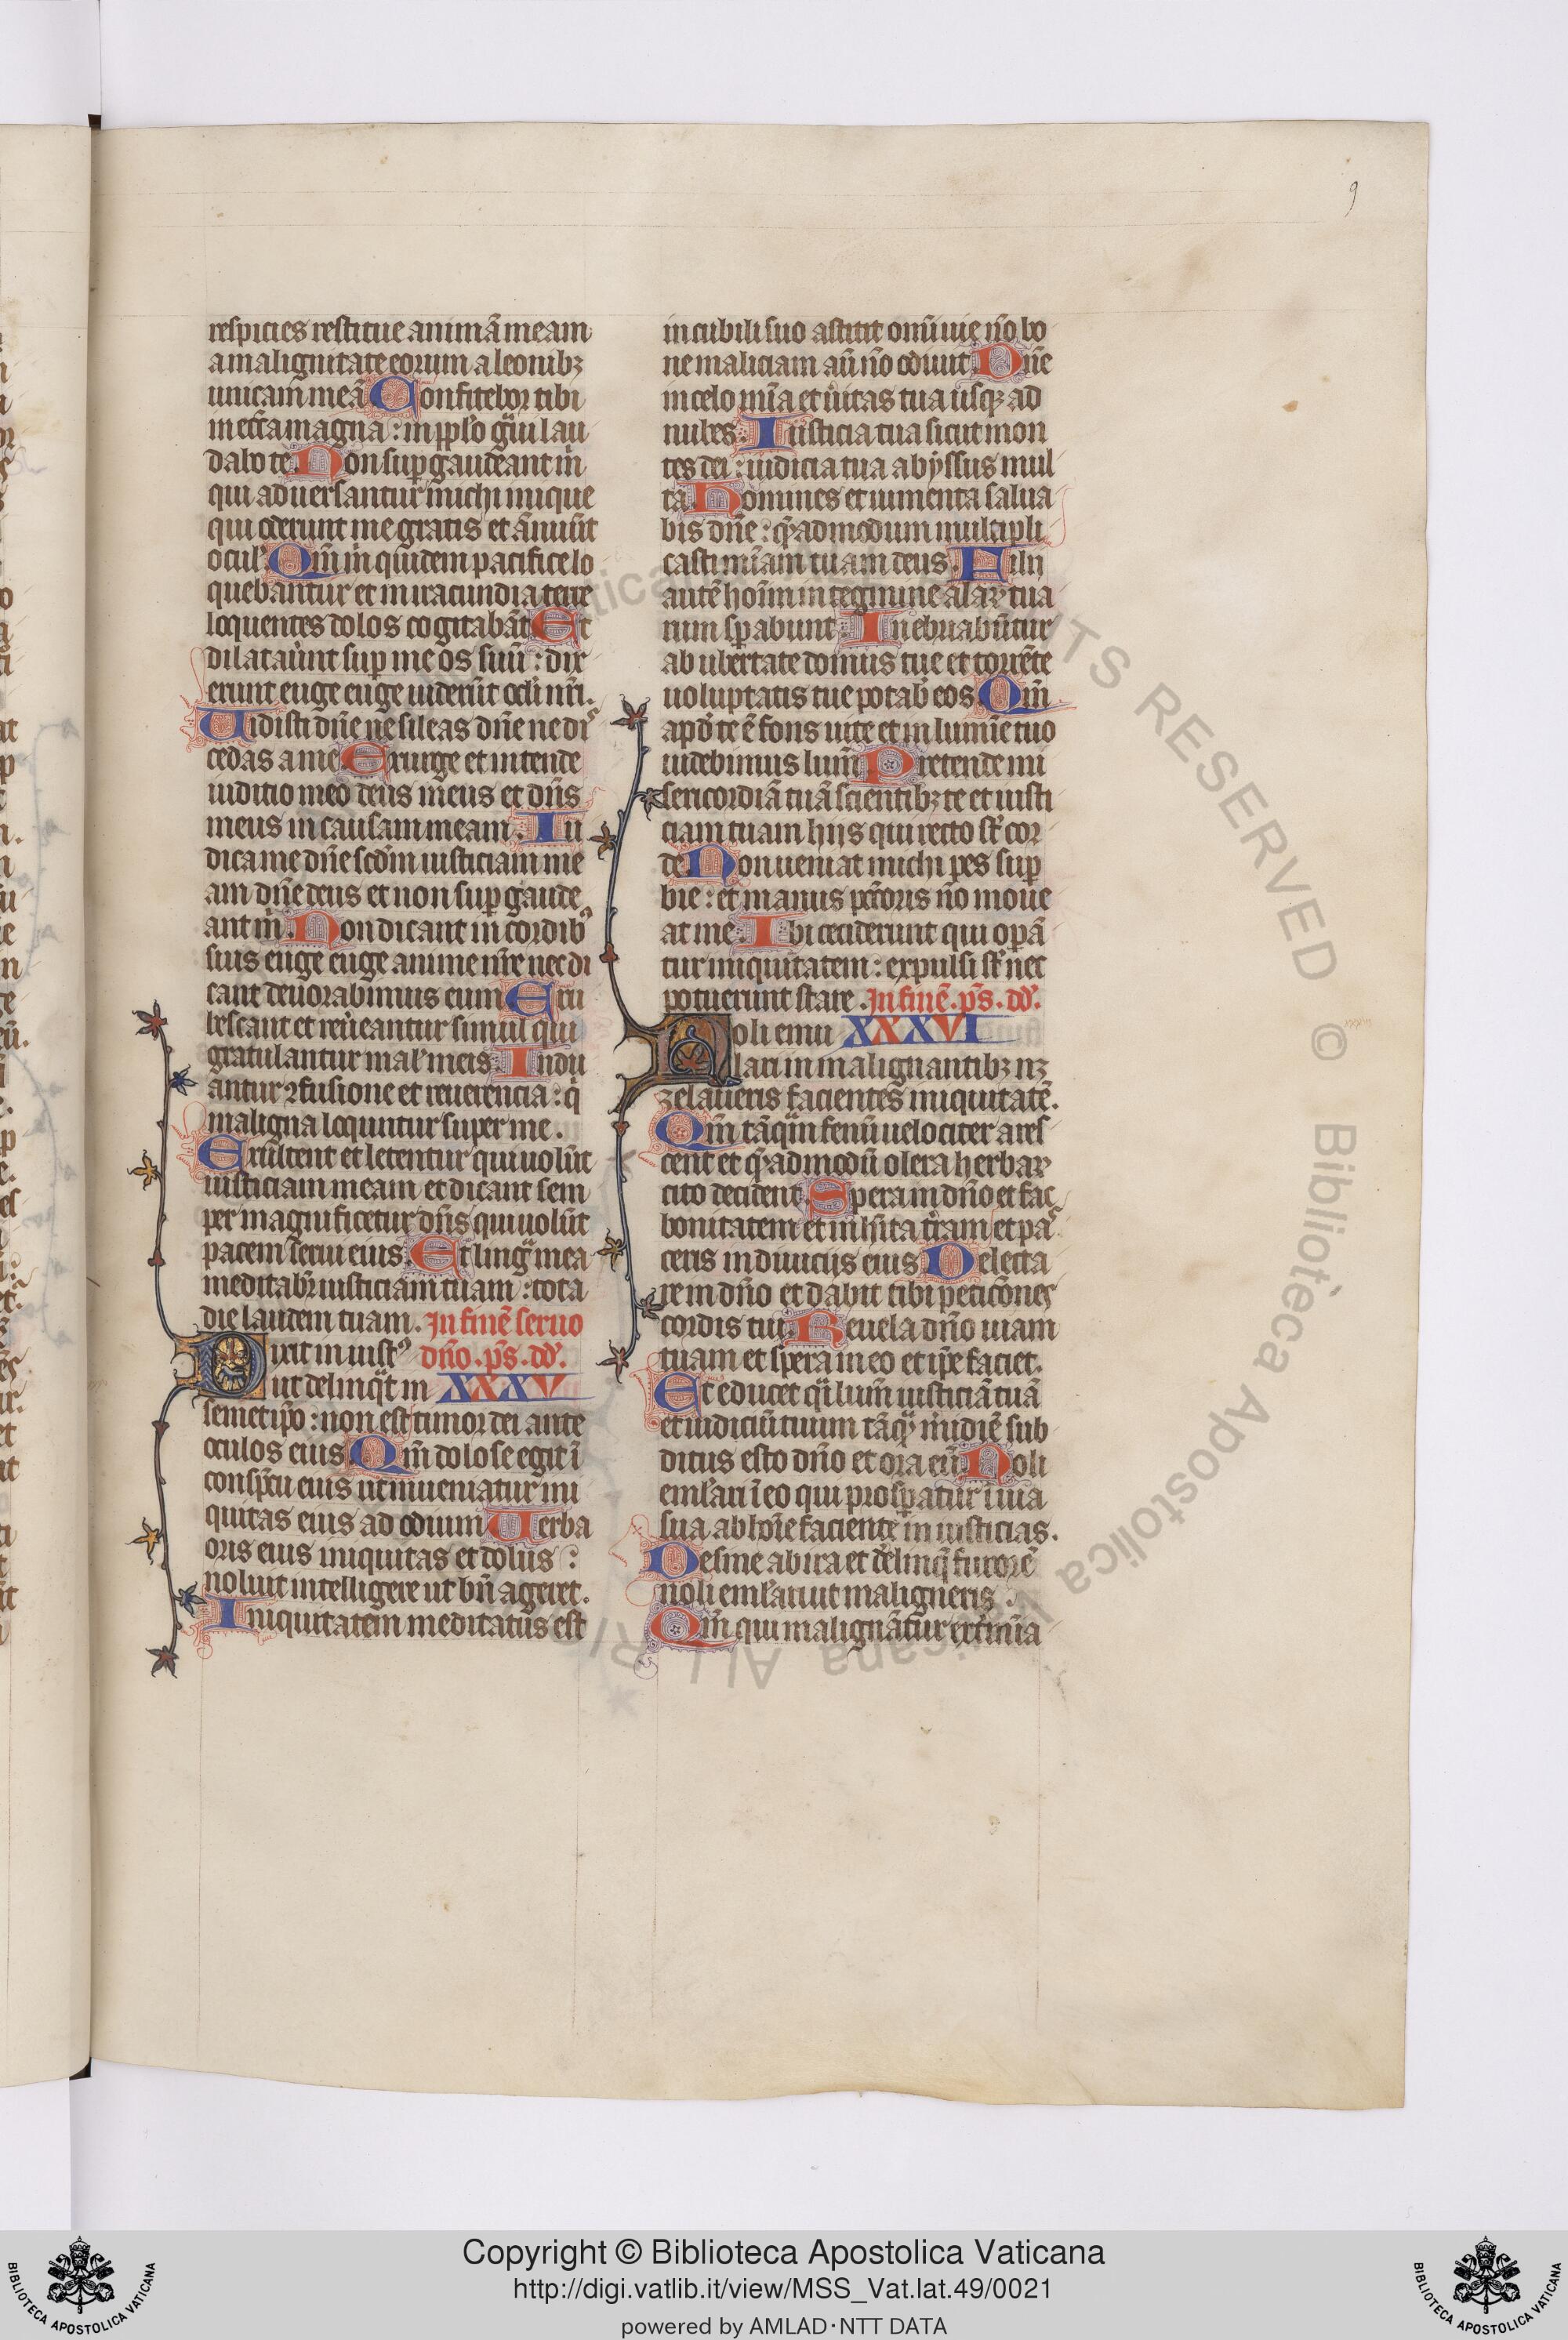 9
respicies restitue animā meam
a malignitate eorum a leonibꝫ
unicam meā Confitebor tibi
in ecc̄a magna : in pp̄lo gͣui lau
dabo te. Non suꝑgaudeant m̄
qui aduersantur michi inique
qui oderunt me gratis et ānuūt
ocul'. Qm̄ m̄ quidem pacifice lo
quebantur et in iracundia terre
loquentes dolos cogitabāt Et
dilatauūnt suꝑ me os suū : dix
erunt euge euge uiderūt ocli nr̄i.
Uidisti dn̄e ne sileas dn̄e ne diˢ
cedas a me. Exurge et intende
iuditio meo deus meus et dn̄s
meus in causam meam. Iu
dica me dn̄e scdm̄ iusticiam me
am dn̄e deus et non suꝑgaude
ant m̄. Non dicant in cordibꝰ
suis euge euge anime nr̄e nec di
cant deuorabimus eum Eru
bescant et reuereantur simul qui
gratulantur mal' meis. Indu
antur ꝯfusione et reuerencia : q̄
maligna loquntur super me.
Exultent et letentur qui uolūt
iusticiam meam et dicant sem
per magnificetur dn̄s qui uolūt
pacem serui eius. Et lingͣ mea
meditabr̄ iusticiam tuam : tota
die laudem tuam. In finē seruo
Dixit iniustꝰ dn̄o. ps̄. dd̄.
ut delinqͣt in XXXV
semetip̄o : non est timor dei ante
oculos eius. Qm̄ dolose egit ī
conspc̄u eius ut inueniatur ini
quitas eius ad odium Uerba
oris eius iniquitas et dolus :
noluit intelligere ut bn̄ ageret.
Iniquitatem meditatus est
in cubili suo astitit om̄i uie nō bo
ne maliciam aū nō odiuit Dn̄e
in celo mīa et uītas tua usqꝫ ad
nubes. Iusticia tua sicut mon
tes dei : iudicia tua abyssus mul
ta Homines et iumenta salua
bis dn̄e : qͣadmodum multipli
casti mīam tuam deus. Filii
autē hoīm in tegmine alaꝝ tua
rum sꝑabunt. Inebriabūtur
ab ubertate domus tue et torrēte
uoluptatis tue potab' eos Qm̄
apd̄ te ē fons uite et in lumīe tuo
uidebimus lum̄ Pretende mi
sericordiā tuā scientibꝫ te et iusti
ciam tuam hijs qui recto st̄ cor
de Non ueniat michi pes suꝑ
bie : et manus pcc̄oris nō moue
at me. Ibi ceciderunt qui oꝑā
tur iniquitatem : expulsi st̄ nec
potuerunt stare. In finē. ps̄. dd̄.
Noli emu XXXVI
lari in malignantibꝫ nꝫ
zelaueris facientes iniquitatē.
Qm̄ tāqͣm fenū uelociter ares
cent et qͣadmodū olera herbaꝝ
cito decident. Spera in dn̄o et fac
bonitatem et inhīta t̄ram et paˢ
ceris in diuicijs eius Delecta
re in dn̄o et dabit tibi peticōnes
cordis tui. Reuela dn̄o uiam
tuam et spera in eo et ip̄e faciet.
Et educet qͣi lum̄ iusticiā tuā
et iudiciū tuum tāqͣ m̄idiē sub
ditus esto dn̄o et ora eū. Noli
emlari ī eo qui prosꝑatur ī uia
sua ab hoīe faciente iniusticias.
Desine ab ira et derelinqͣ furorē
noli emlari ut maligneris.
Qm̄ qui malignātur ext̄mīa
Copyright © Biblioteca Apostolica Vaticana
http://digi.vatlib.it/view/MSS_Vat.lat.49/0021
powered by AMLAD·NTT DATA
BIBLIOTECA APOSTOLICA VATICANA
BIBLIOTECA APOSTOLICA VATICANA